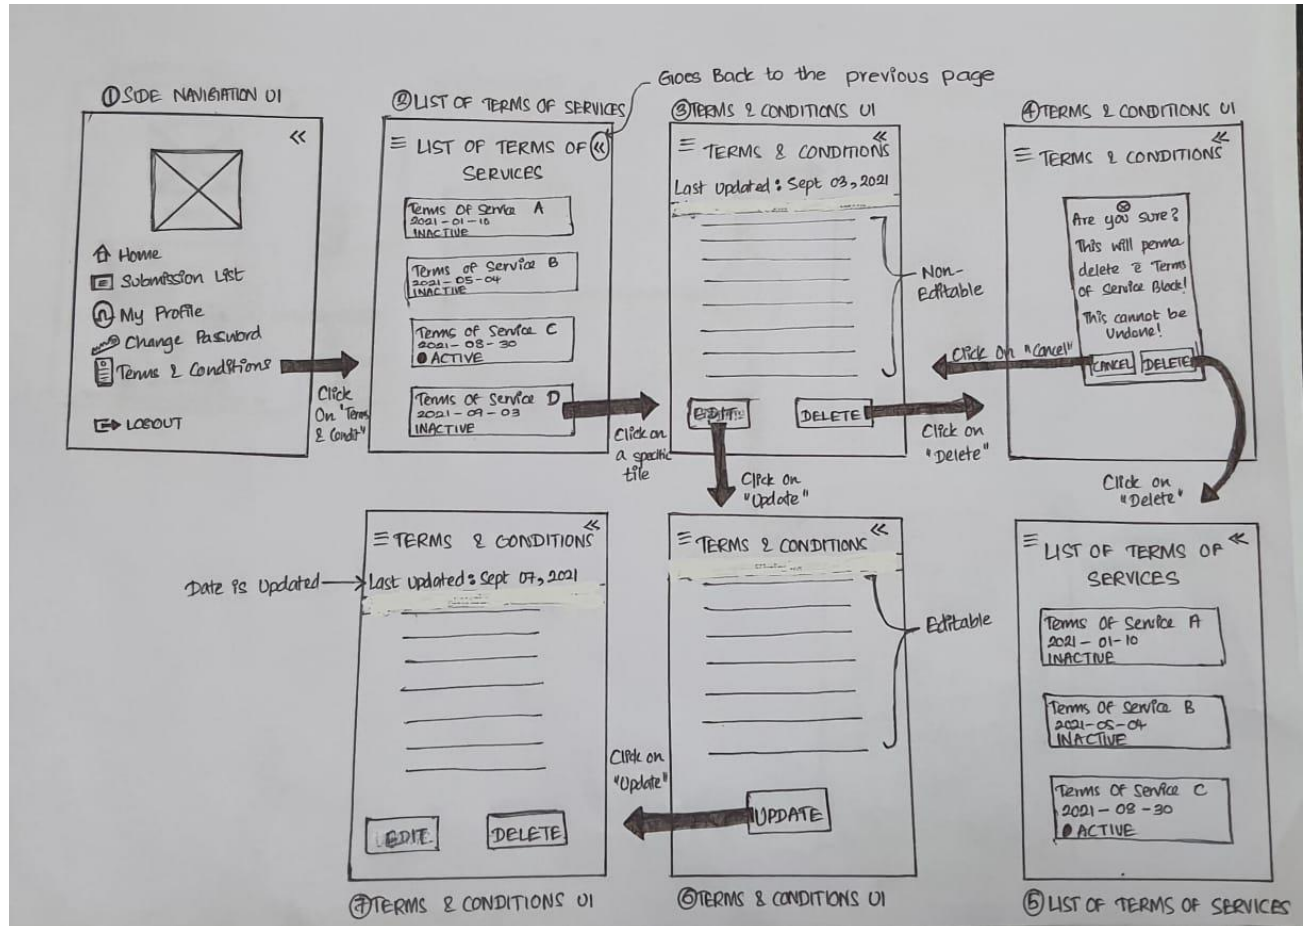 Goes Back to the previous page
① SIDE NAVIGATION UI
«
Home
Submission List
My Profile
Change Password
Terms & Conditions
LOGOUT
Click
On "Terms
& Condit"
② LIST OF TERMS OF SERVICES
LIST OF TERMS OF «
SERVICES
Terms Of Service A
2021-01-10
INACTIVE
Terms of Service B
2021-05-04
INACTIVE
Terms of Service C
2021-08-30
ACTIVE
Terms of Service D
2021-09-03
INACTIVE
Click on
a specific
tile
③ TERMS & CONDITIONS UI
«
TERMS & CONDITIONS
Last Updated: Sept 03, 2021
Non-
Editable
EDIT
DELETE
Click on
"Update"
Click on
"Delete"
④ TERMS & CONDITIONS UI
«
TERMS & CONDITIONS
Are you sure?
This will perma
delete a Terms
of Service Block!
This cannot be
Undone!
CANCEL DELETE
Click On "Cancel"
Click on
"Delete"
«
LIST OF TERMS OF
SERVICES
Terms Of Service A
2021-01-10
INACTIVE
Terms Of Service B
2021-05-04
INACTIVE
Terms Of Service C
2021-08-30
ACTIVE
⑤ LIST OF TERMS OF SERVICES
«
TERMS & CONDITIONS
Editable
UPDATE
⑥ TERMS & CONDITIONS UI
Click on
"Update"
«
TERMS & CONDITIONS
Date is Updated
Last Updated: Sept 07, 2021
EDIT
DELETE
⑦ TERMS & CONDITIONS UI